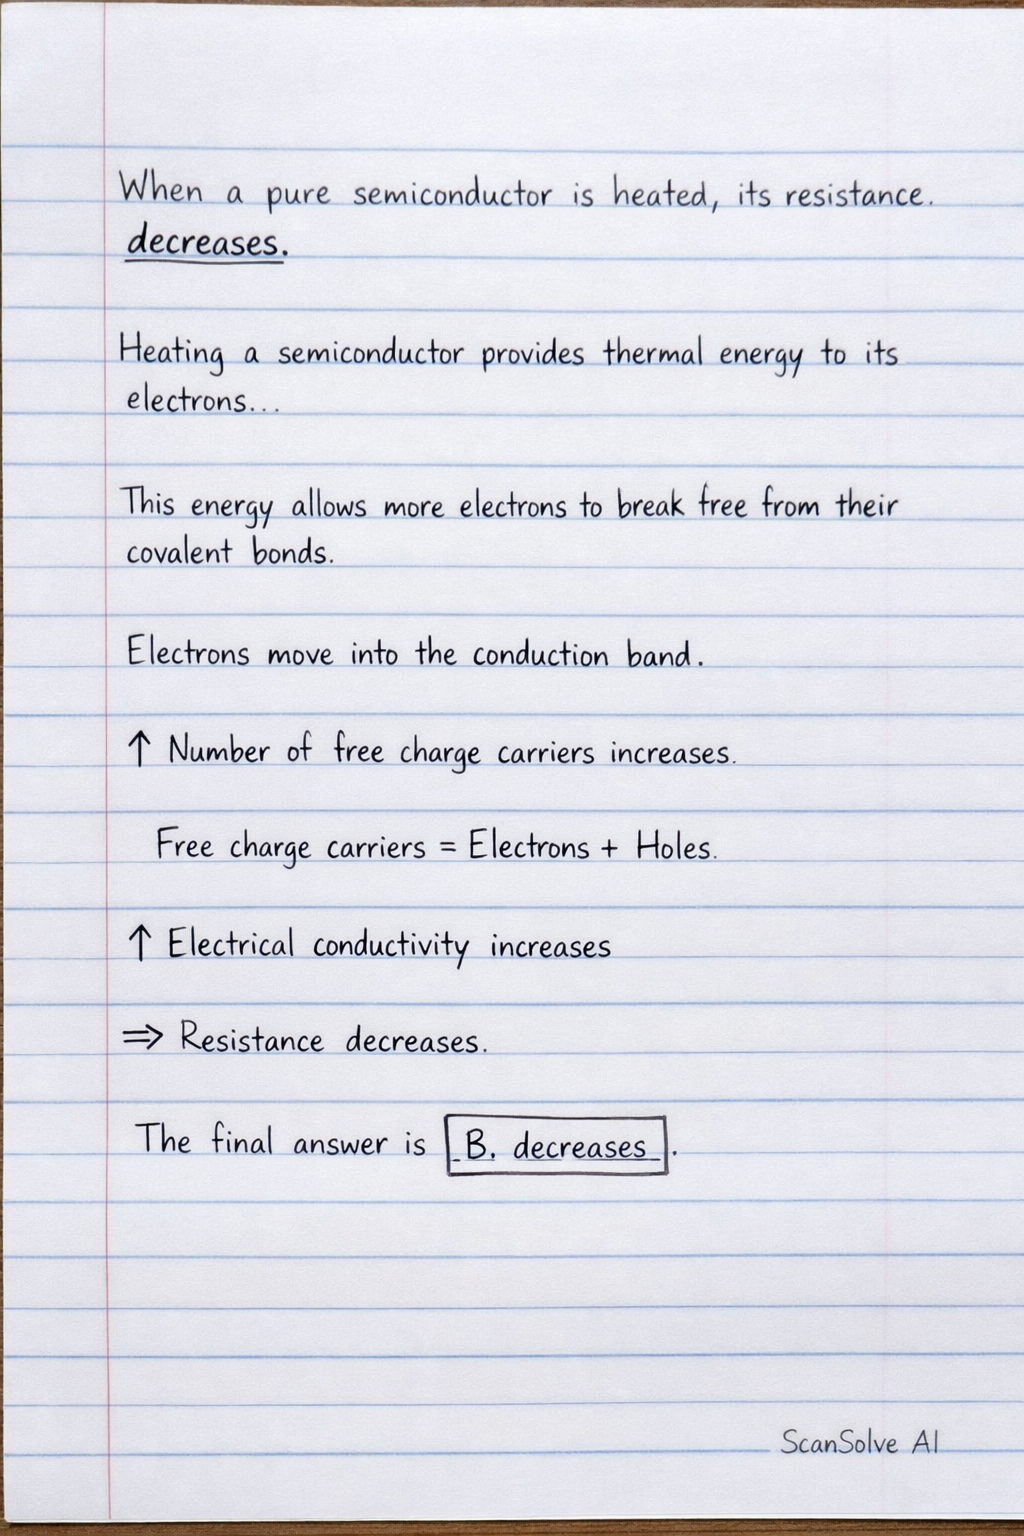 When a pure semiconductor is heated, its resistance.
decreases.
Heating a semiconductor provides thermal energy to its
electrons...
This energy allows more electrons to break free from their
covalent bonds.
Electrons move into the conduction band.
↑ Number of free charge carriers increases.
Free charge carriers = Electrons + Holes.
↑ Electrical conductivity increases
⇒ Resistance decreases.
The final answer is B. decreases.
ScanSolve AI